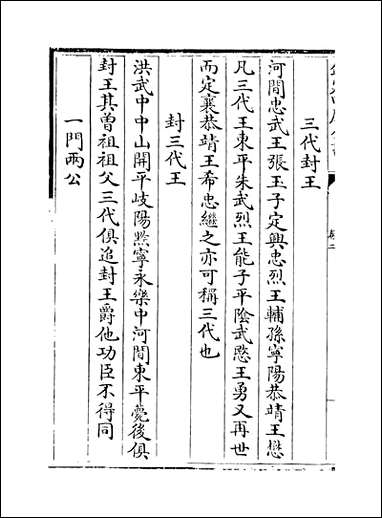 三代封王
河間忠武王張玉子定興忠烈王輔孫寧陽恭靖王懋
凡三代王東平朱武烈王能子平陰武愍王勇又再世
而定襄恭靖王希忠繼之亦可稱三代也
封三代王
洪武中中山開平岐陽黔寧永樂中河間東平薨後俱
封王其曾祖祖父三代俱追封王爵他功臣不得同
一門兩公